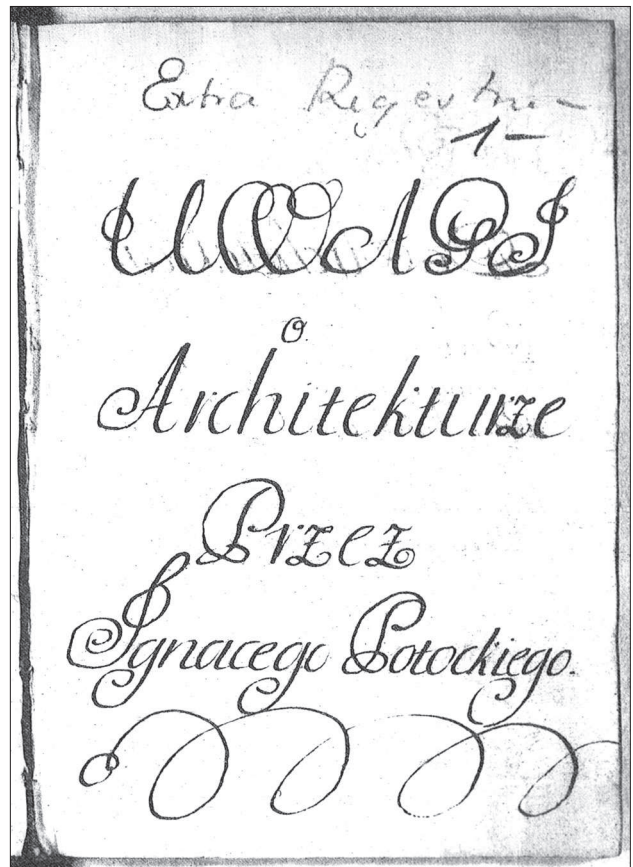 Extra Regestru –
1 –
UWAGI
o
Architekturze
Przez
Ignacego Potockiego.